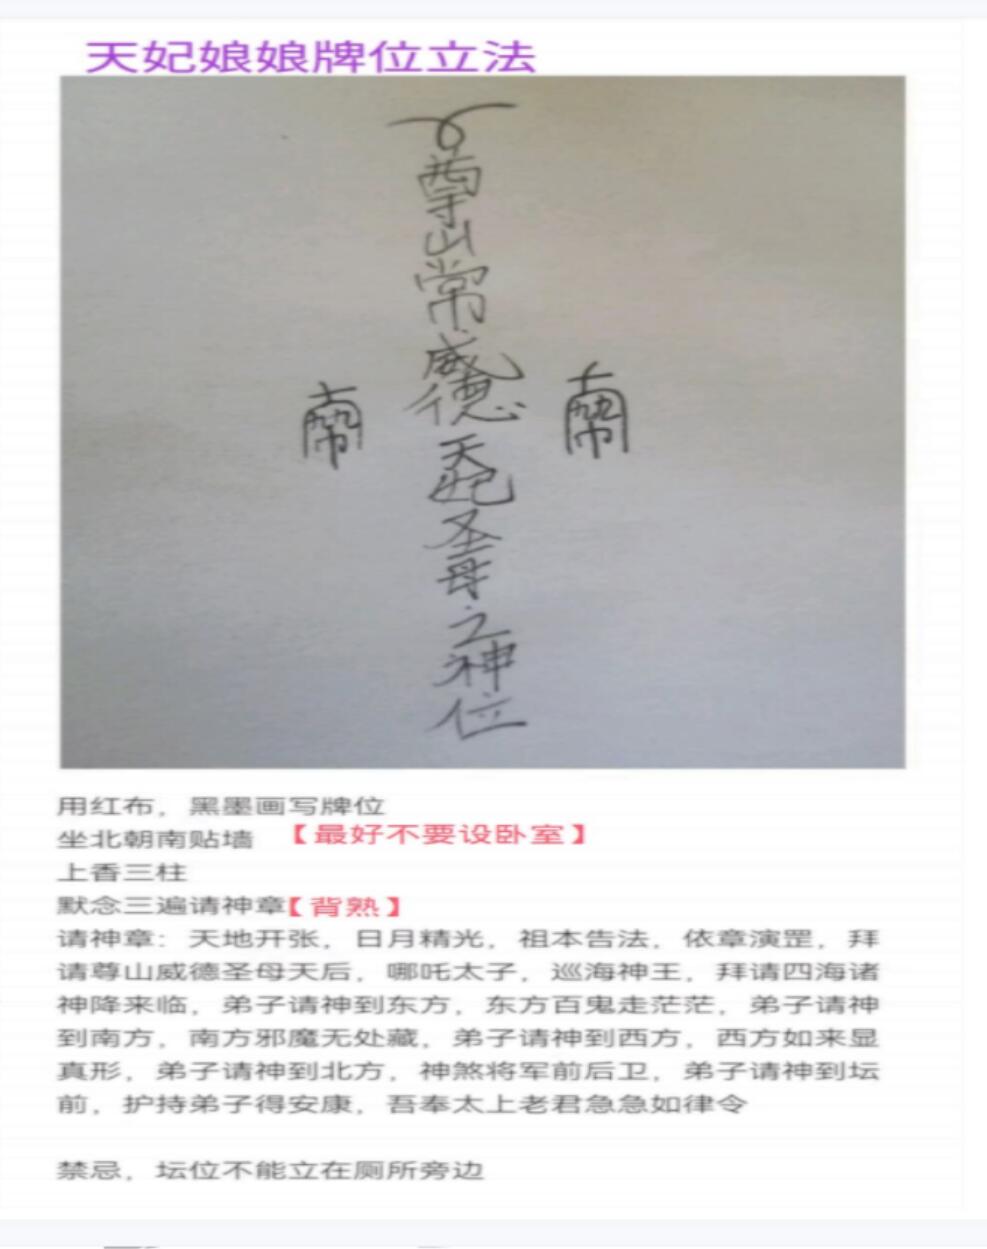 天妃娘娘牌位立法
尊山常威德天妃圣母之神位
用红布，黑墨画写牌位
坐北朝南贴墙 【最好不要设卧室】
上香三柱
默念三遍请神章【背熟】
请神章：天地开张，日月精光，祖本告法，依章演罡，拜
请尊山威德圣母天后，哪吒太子，巡海神王，拜请四海诸
神降来临，弟子请神到东方，东方百鬼走茫茫，弟子请神
到南方，南方邪魔无处藏，弟子请神到西方，西方如来显
真形，弟子请神到北方，神煞将军前后卫，弟子请神到坛
前，护持弟子得安康，吾奉太上老君急急如律令
禁忌，坛位不能立在厕所旁边